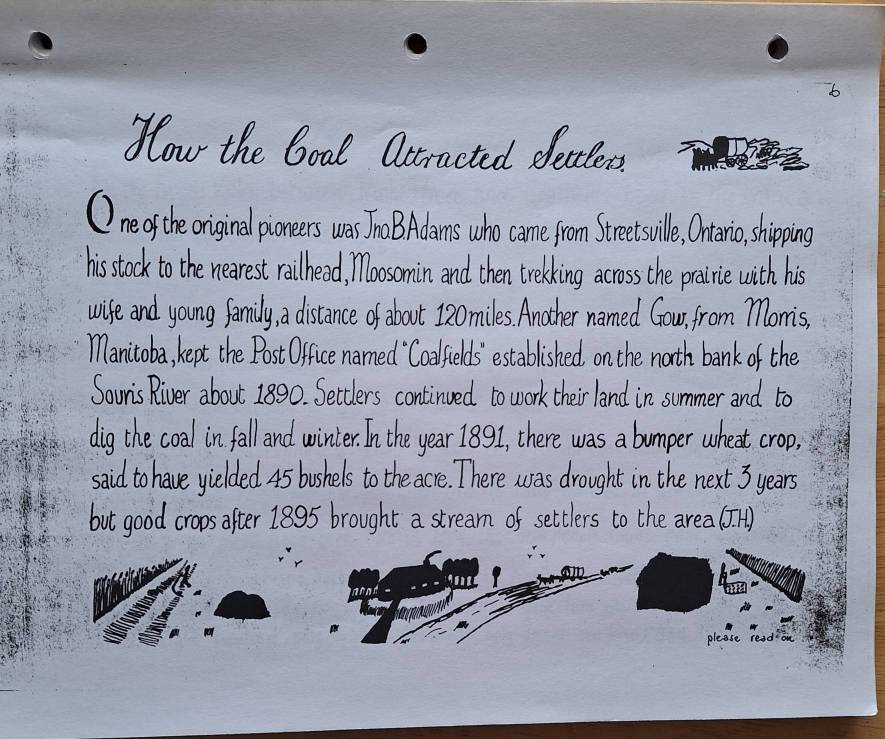 6
How the Coal Attracted Settlers.
One of the original pioneers was Jno.B.Adams who came from Streetsville, Ontario, shipping
his stock to the nearest railhead, Moosomin and then trekking across the prairie with his
wife and young family, a distance of about 120 miles. Another named Gow, from Morris,
Manitoba, kept the Post Office named "Coalfields" established on the north bank of the
Souris River about 1890. Settlers continued to work their land in summer and to
dig the coal in fall and winter. In the year 1891, there was a bumper wheat crop,
said to have yielded 45 bushels to the acre. There was drought in the next 3 years
but good crops after 1895 brought a stream of settlers to the area (J.H.)
please read on